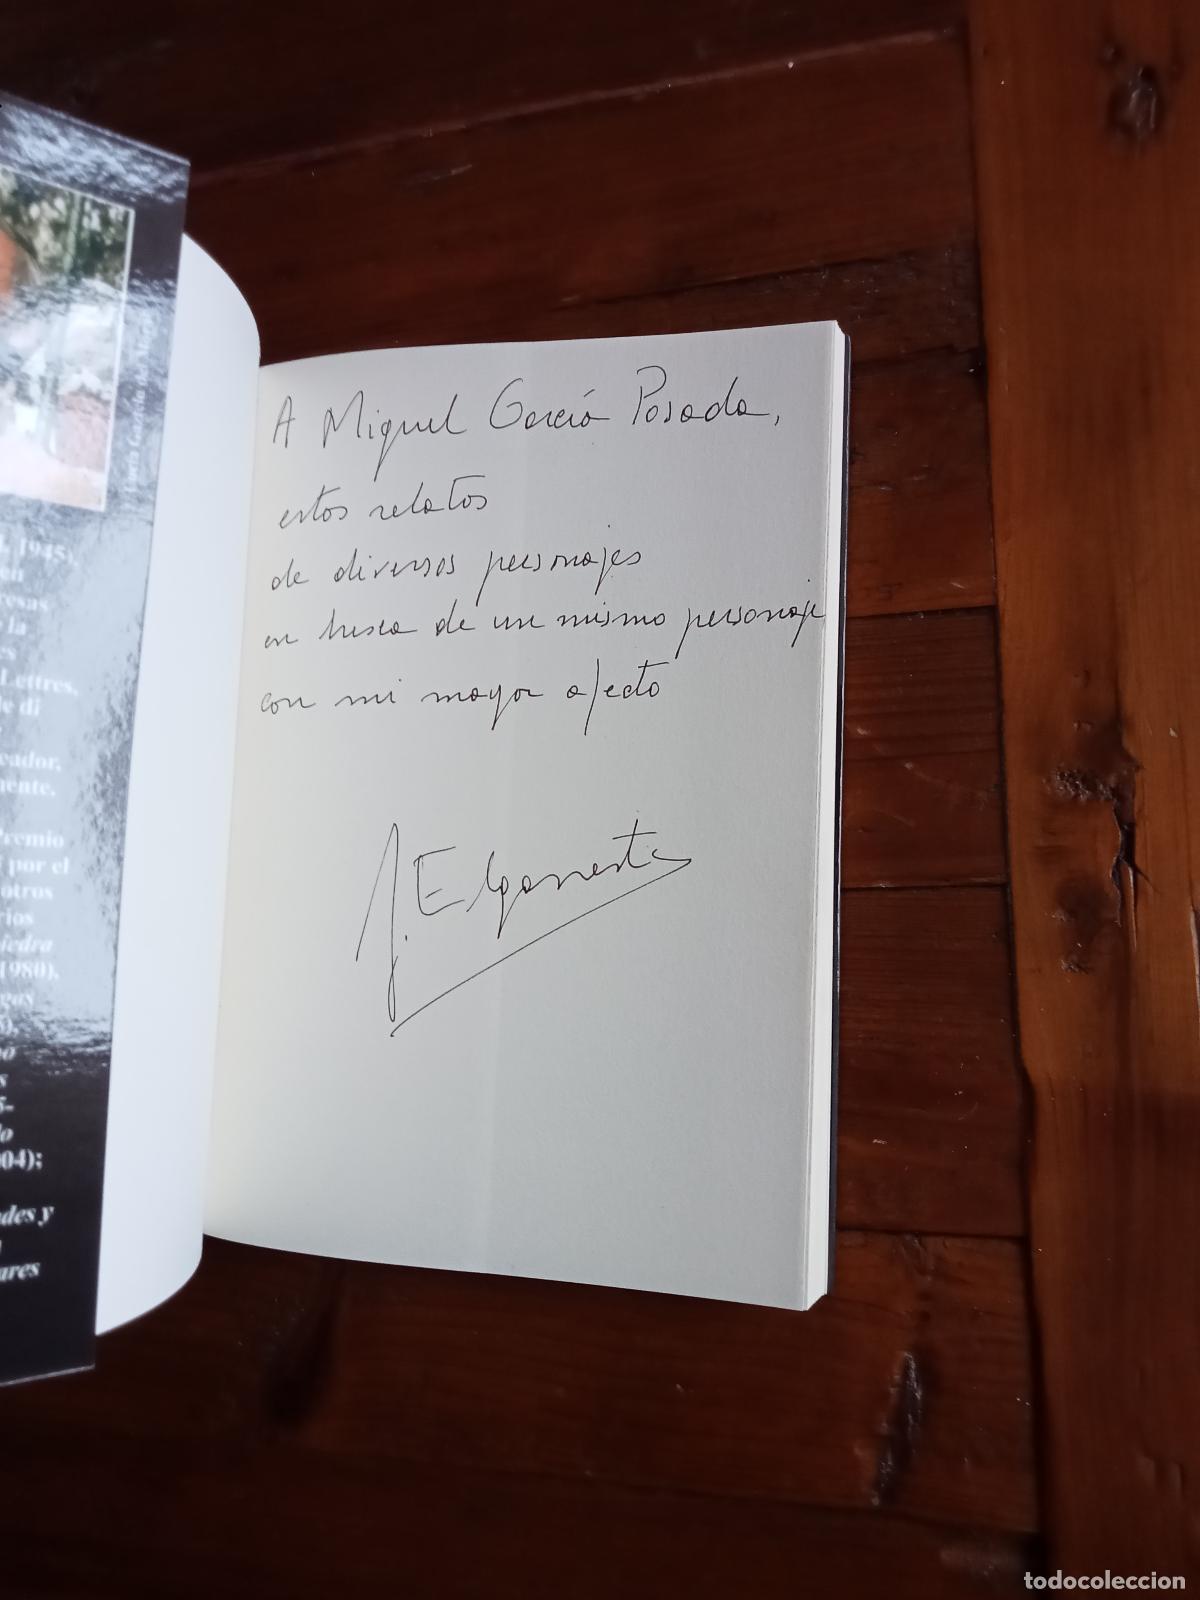 Lucía Guzmán de Alba
, 1945),
en
resas
la
Lettres,
le di
eador,
mente.
Premio
por el
otros
rios
piedra
1980),
gas
do
04);
des y
ares
A Miguel García Posada,
estos relatos
de diversos personajes
en busca de un mismo personaje
con mi mayor afecto
todocoleccion